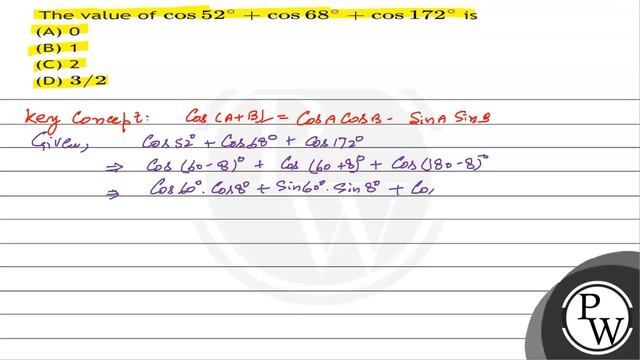 The value of cos 52° + cos 68° + cos 172° is
(A) 0
(B) 1
(C) 2
(D) 3/2
Key Concept: Cos (A+B) = CosA CosB - SinA SinB
Given, Cos52° + Cos68° + Cos172°
⇒ Cos (60-8)° + Cos (60+8)° + Cos(180-8)°
⇒ Cos60°. Cos8° + Sin60°. Sin8° + Co
PW